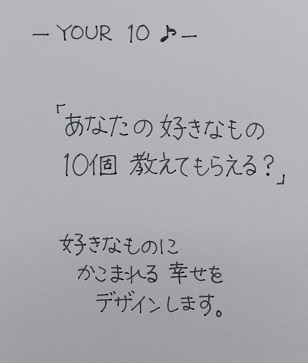 — YOUR 10 ♪ —
「あなたの好きなもの
10個 教えてもらえる？」
好きなものに
かこまれる 幸せを
デザインします。